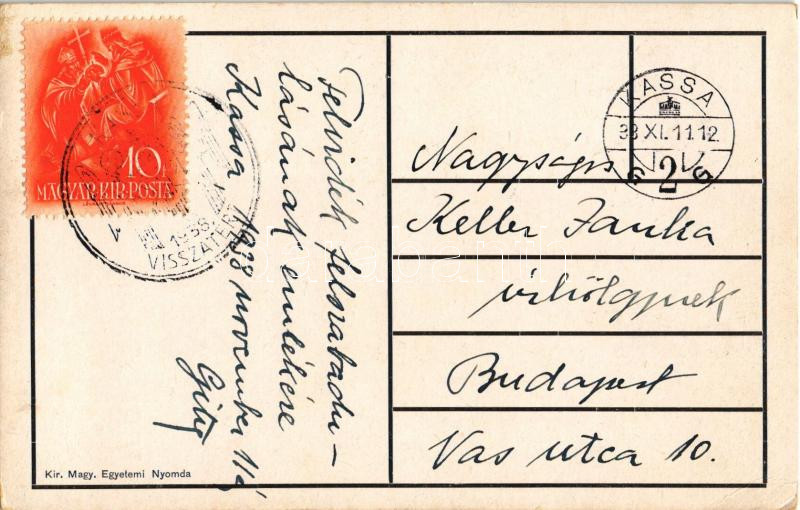 10 f
MAGYAR·KIR·POSTA
1938
VISSZATÉRT
KASSA
38 XI. 11. 12
2
Felvidék felszabadu-
lásának emlékére
Kassa 1938 november 11
Nagyságos
Keller Janka
úrhölgynek
Budapest
Vas utca 10.
Kir. Magy. Egyetemi Nyomda